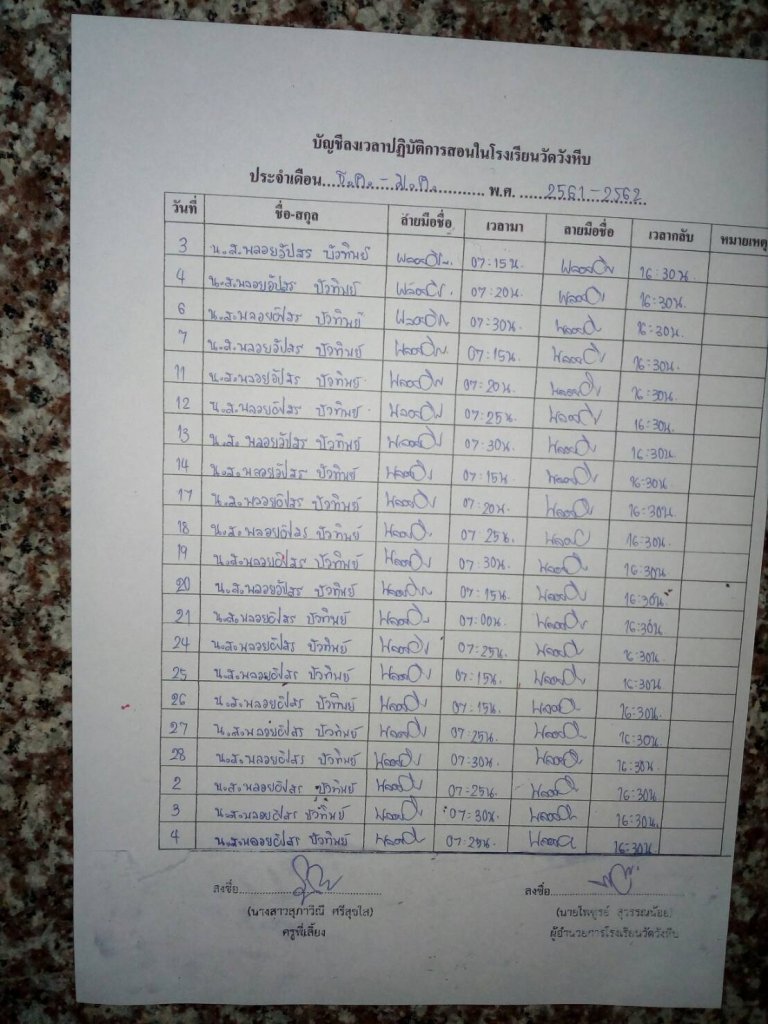 บัญชีลงเวลาปฏิบัติการสอนในโรงเรียนวัดวังหีบ
ประจำเดือน...ธ.ค. - ม.ค............ พ.ศ. ......2561-2562
วันที่ ชื่อ-สกุล ลายมือชื่อ เวลามา ลายมือชื่อ เวลากลับ หมายเหตุ
3 น.ส.พลอยอัปสร บัวทิพย์ 07:15น. 16:30น.
4 น.ส.พลอยอัปสร บัวทิพย์ 07:20น. 16:30น.
6 น.ส.พลอยอัปสร บัวทิพย์ 07:30น. 16:30น.
7 น.ส.พลอยอัปสร บัวทิพย์ 07:15น. 16:30น.
11 น.ส.พลอยอัปสร บัวทิพย์ 07:20น. 16:30น.
12 น.ส.พลอยอัปสร บัวทิพย์ 07:25น. 16:30น.
13 น.ส.พลอยอัปสร บัวทิพย์ 07:30น. 16:30น.
14 น.ส.พลอยอัปสร บัวทิพย์ 07:15น. 16:30น.
17 น.ส.พลอยอัปสร บัวทิพย์ 07:20น. 16:30น.
18 น.ส.พลอยอัปสร บัวทิพย์ 07:25น. 16:30น.
19 น.ส.พลอยอัปสร บัวทิพย์ 07:30น. 16:30น.
20 น.ส.พลอยอัปสร บัวทิพย์ 07:15น. 16:30น.
21 น.ส.พลอยอัปสร บัวทิพย์ 07:00น. 16:30น.
24 น.ส.พลอยอัปสร บัวทิพย์ 07:25น. 16:30น.
25 น.ส.พลอยอัปสร บัวทิพย์ 07:15น. 16:30น.
26 น.ส.พลอยอัปสร บัวทิพย์ 07:15น. 16:30น.
27 น.ส.พลอยอัปสร บัวทิพย์ 07:25น. 16:30น.
28 น.ส.พลอยอัปสร บัวทิพย์ 07:30น. 16:30น.
2 น.ส.พลอยอัปสร บัวทิพย์ 07:25น. 16:30น.
3 น.ส.พลอยอัปสร บัวทิพย์ 07:30น. 16:30น.
4 น.ส.พลอยอัปสร บัวทิพย์ 07:25น. 16:30น.
ลงชื่อ ลงชื่อ
(นางสาวสุภาวิณี ศรีสุขใส) (นายไพฑูรย์ สุวรรณน้อย)
ครูพี่เลี้ยง ผู้อำนวยการโรงเรียนวัดวังหีบ